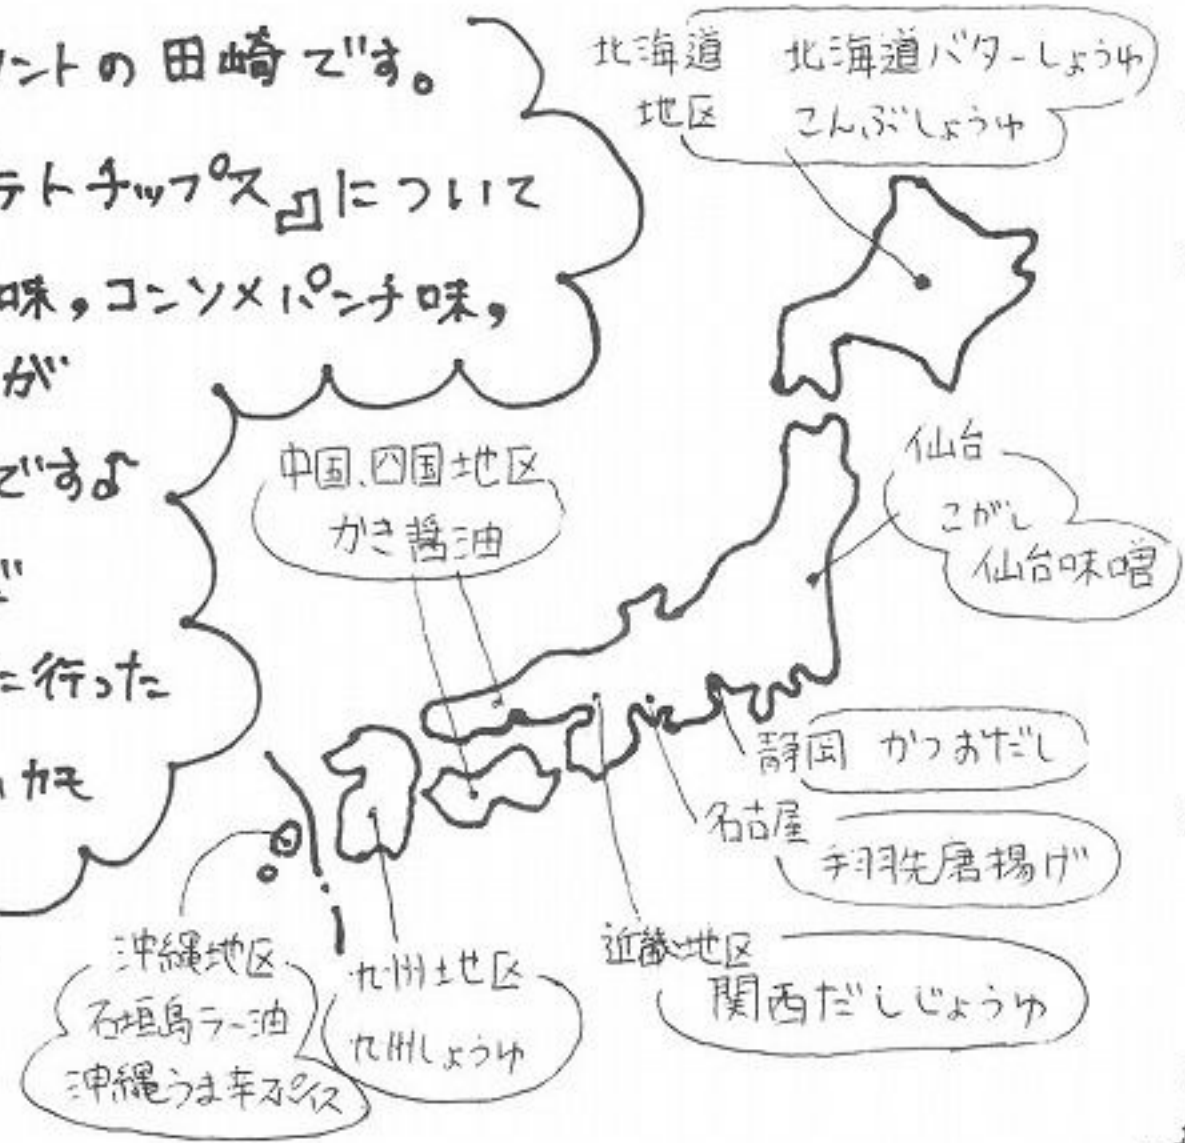 ントの田崎です。
テトチップス』について
味,コンソメパンチ味,
が
です♪
に行った
カモ
北海道
地区
北海道バターしょうゆ
こんぶしょうゆ
中国、四国地区
がき醤油
仙台
こがし
仙台味噌
静岡 かつおだし
名古屋
手羽先唐揚げ
近畿地区
関西だしじょうゆ
九州地区
九州しょうゆ
沖縄地区
石垣島ラー油
沖縄うま辛スパイス